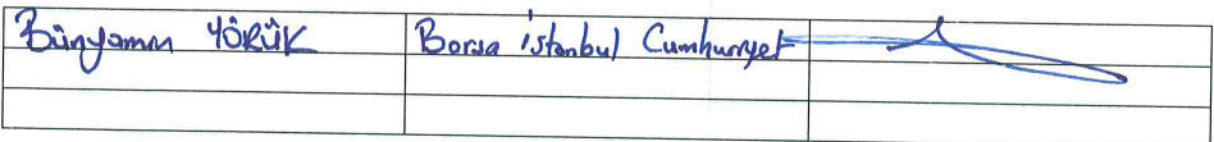 Bünyamın YÖRÜK Borsa istanbul Cumhuriyet